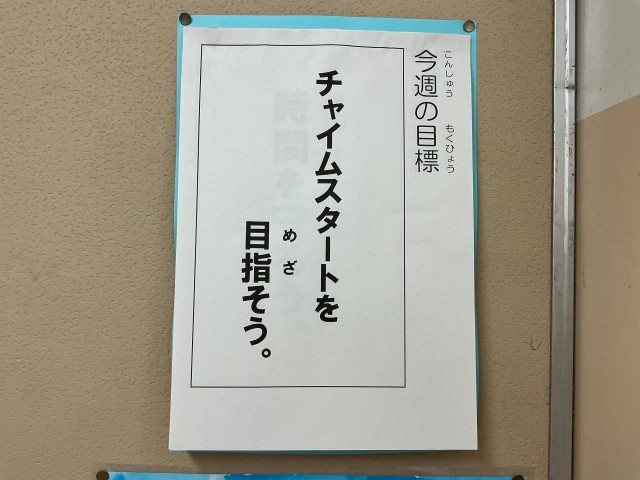 今週の目標
こんしゅう もくひょう
チャイムスタートを
目指そう。
めざ